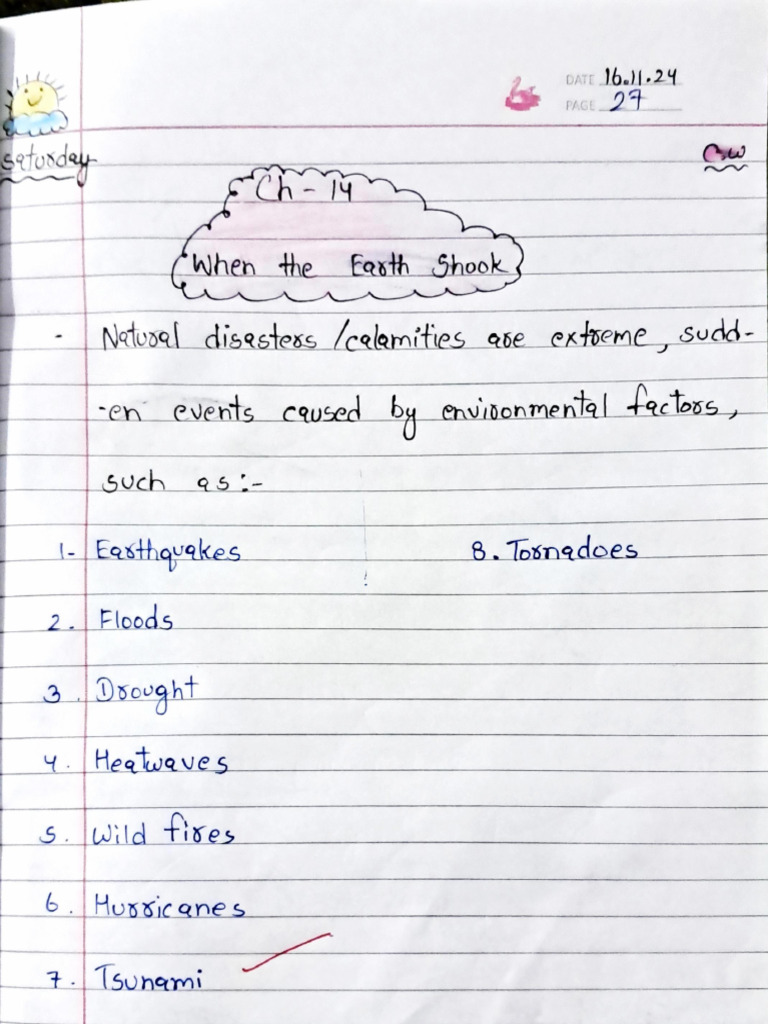 DATE 16.11.24
PAGE 27
Saturday
CW
Ch - 14
When the Earth Shook
- Natural disasters /calamities are extreme, sudd-
-en events caused by environmental factors,
such as:-
1- Earthquakes
2. Floods
3. Drought
4. Heatwaves
5. Wild fires
6. Hurricanes
7. Tsunami
8. Tornadoes